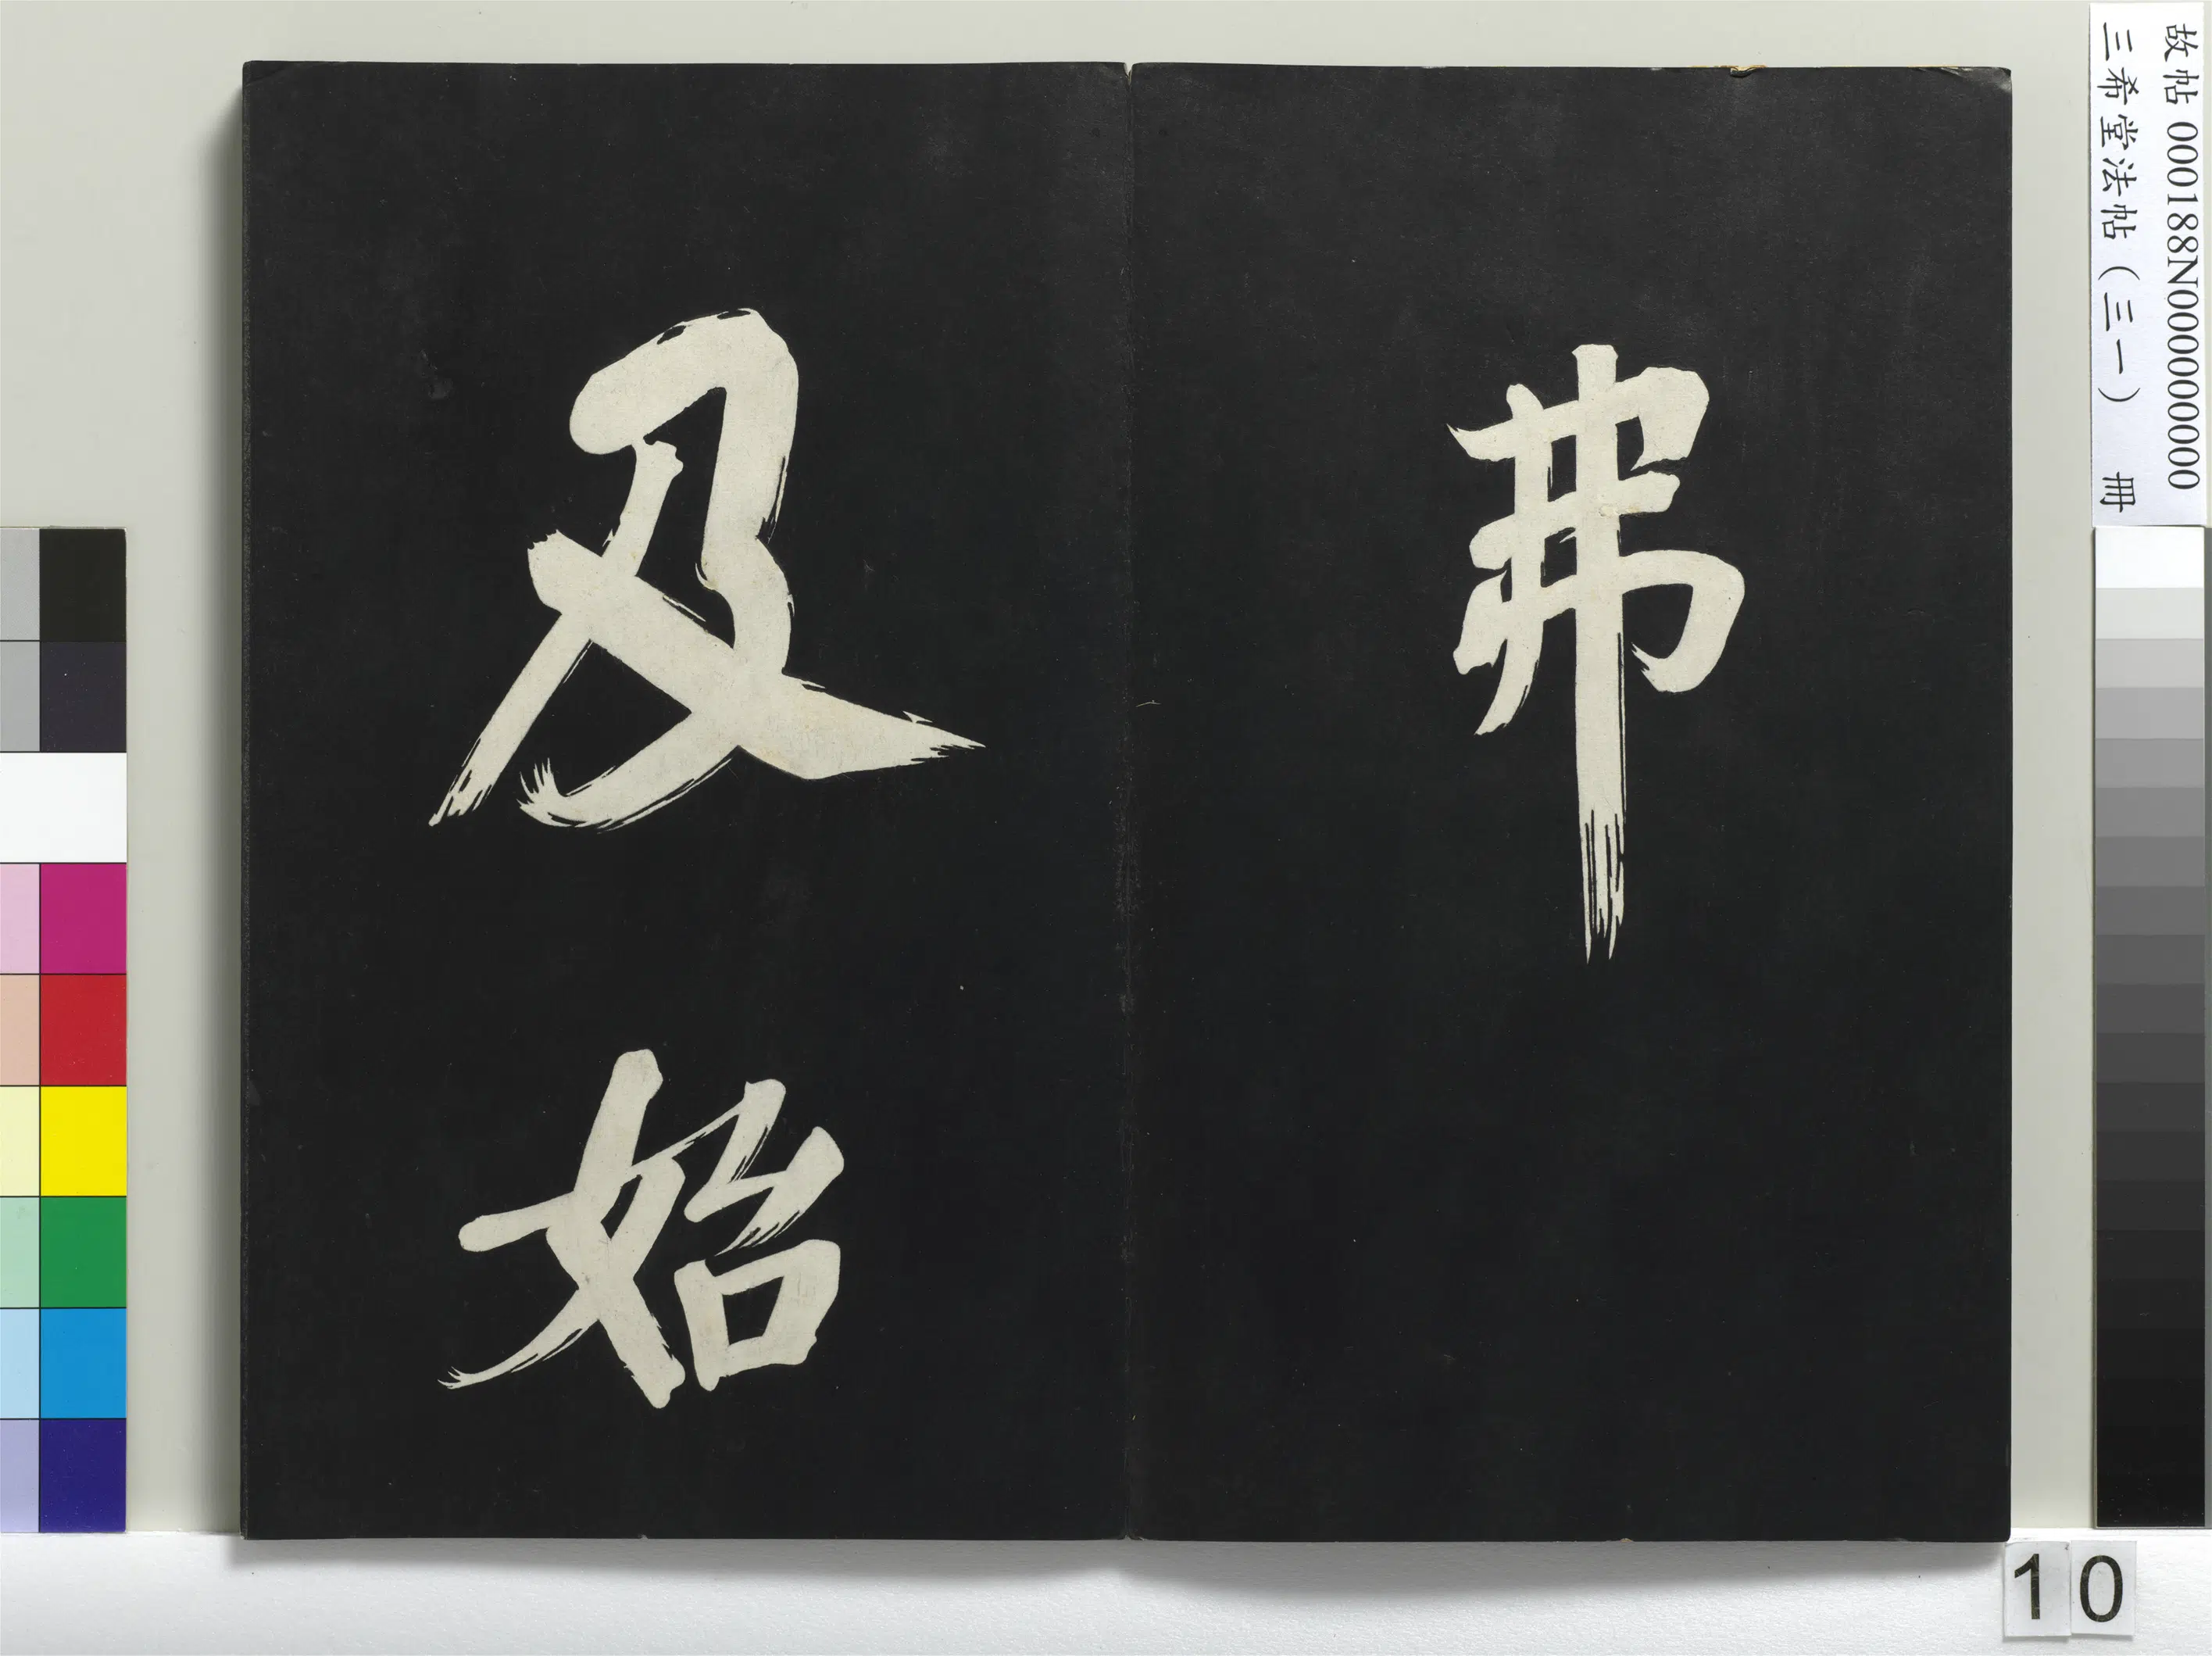 弗
及始
故帖000188N000000000
三希堂法帖（三一） 冊
10